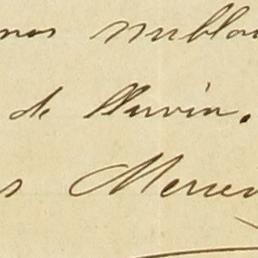 nos nublo
de lluvia.
s Merce